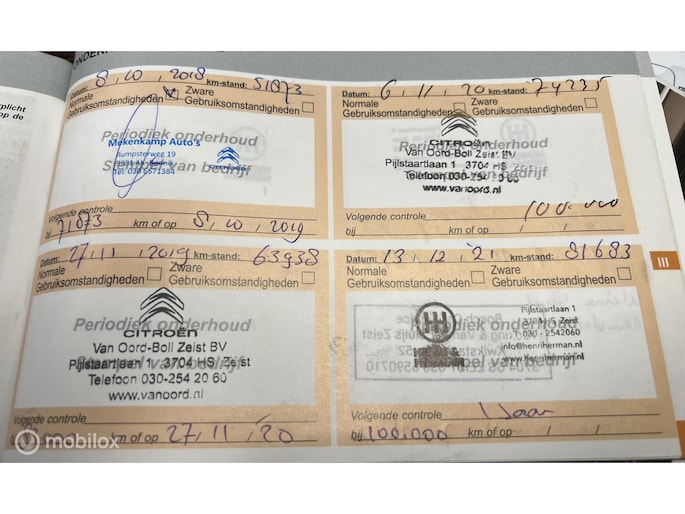 Datum: 8, 10, 2018 km-stand: 51873
Normale Gebruiksomstandigheden Zware Gebruiksomstandigheden
Periodiek onderhoud
Mekenkamp Auto's
Rumpsterweg 19
Tel. 030 6571384
Volgende controle
bij 71873 km of op 8, 10, 2019
Datum: 6, 11, 20 km-stand: 74235
Normale Gebruiksomstandigheden Zware Gebruiksomstandigheden
Periodiek onderhoud
CITROËN
Van Oord-Boll Zeist BV
Pijlstaartlaan 1 3704 HS Zeist
Telefoon 030-254 20 60
www.vanoord.nl
Volgende controle
bij km of op 100.000
Datum: 27, 11, 2019 km-stand: 63938
Normale Gebruiksomstandigheden Zware Gebruiksomstandigheden
Periodiek onderhoud
CITROËN
Van Oord-Boll Zeist BV
Pijlstaartlaan 1, 3704 HS Zeist
Telefoon 030-254 20 60
www.vanoord.nl
Volgende controle
km of op 27, 11, 20
Datum: 13, 12, 21 km-stand: 81683
Normale Gebruiksomstandigheden Zware Gebruiksomstandigheden
Pijlstaartlaan 1
3704 HS Zeist
030 - 2542060
info@henriherman.nl
www.henriherman.nl
Volgende controle 1 Jaar
bij 100.000 km of op
III
mobilox